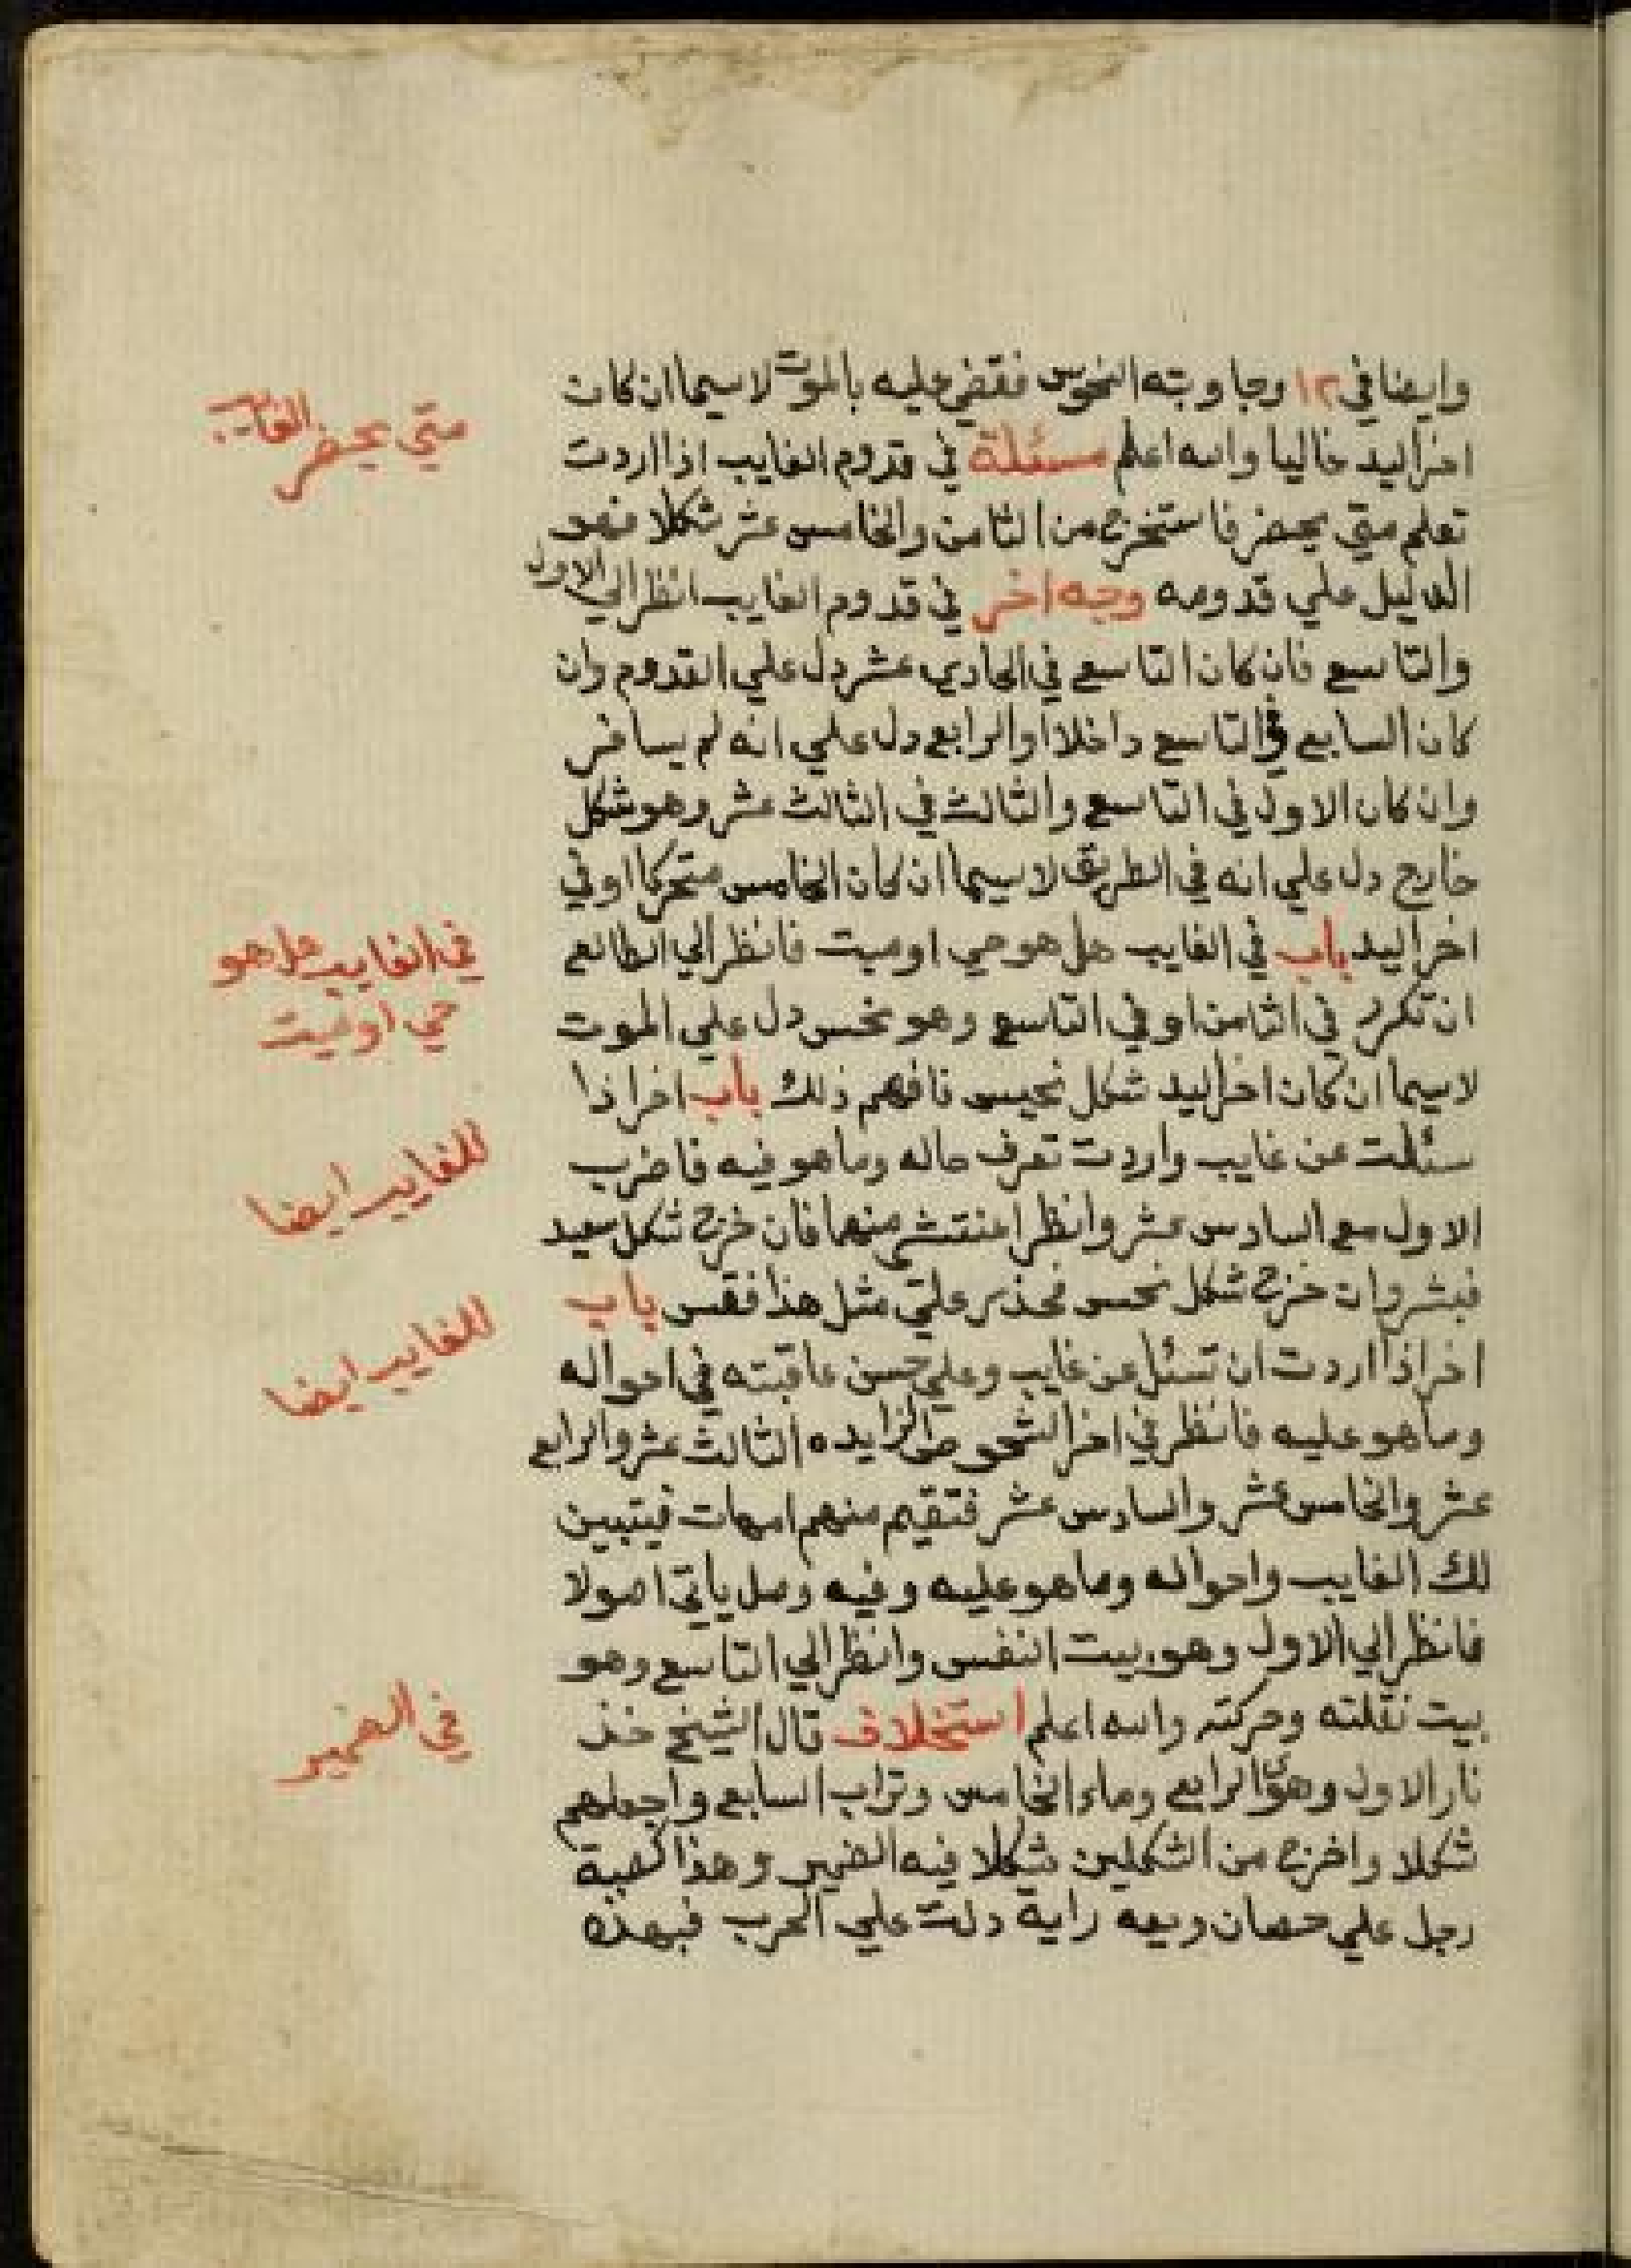 وايضا في ١٢ وجاوبته النحوس فقضي عليه بالموت لاسيما ان كان
اخر اليد خاليا والله اعلم مسئلة في قدوم الغايب اذا اردت
متي يحضر الغايب
تعلم متي يحضر فاستخرج من الثامن والخامس عشر شكلا فهو
الدليل علي قدومه وجه اخر في قدوم الغايب انظر الي الاول
والتاسع فان كان التاسع في الحادي عشر دل علي القدوم وان
كان السابع في التاسع داخلا او الرابع دل علي انه لم يسافر
وان كان الاول في التاسع والثالث في الثالث عشر وهو شكل
خارج دل علي انه في الطريق لاسيما ان كان الخامس متحركا او في
اخر اليد باب في الغايب هل هو حي او ميت فانظر الي الطالع
في الغايب هل هو
حي او ميت
ان تكرر في الثامن او في التاسع وهو نحس دل علي الموت
لاسيما ان كان اخر اليد شكل نحيس فافهم ذلك باب اخر اذا
سئلت عن غايب واردت تعرف حاله وما هو فيه فاضرب
للغايب ايضا
الاول مع السادس عشر وانظر امنتشر منهما فان خرج شكل سعيد
فبشر وان خرج شكل نحس فحذر علتي مثل هذا فقس باب
للغايب ايضا
اخر اذا اردت ان تسئل عن غايب وعلي حسن عاقبته في احواله
وما هو عليه فانظر في اخر الشخوص الزايده الثالث عشر والرابع
عشر والخامس عشر والسادس عشر فتقيم منهم امهات فيتبين
لك الغايب واحواله وما هو عليه وفيه وصل ياتي اصولا
فانظر الي الاول وهو بيت النفس وانظر الي التاسع وهو
بيت نقلته وحركته والله اعلم استخلاف قال الشيخ خذ
في الضمير
نار الاول وهوا الرابع وماء الخامس وتراب السابع واجعلهم
شكلا واخرج من الشكلين شكلا فيه الضمير وهذا كهيئة
رجل علي حصان وبيده راية دلت علي الحرب فبهذه